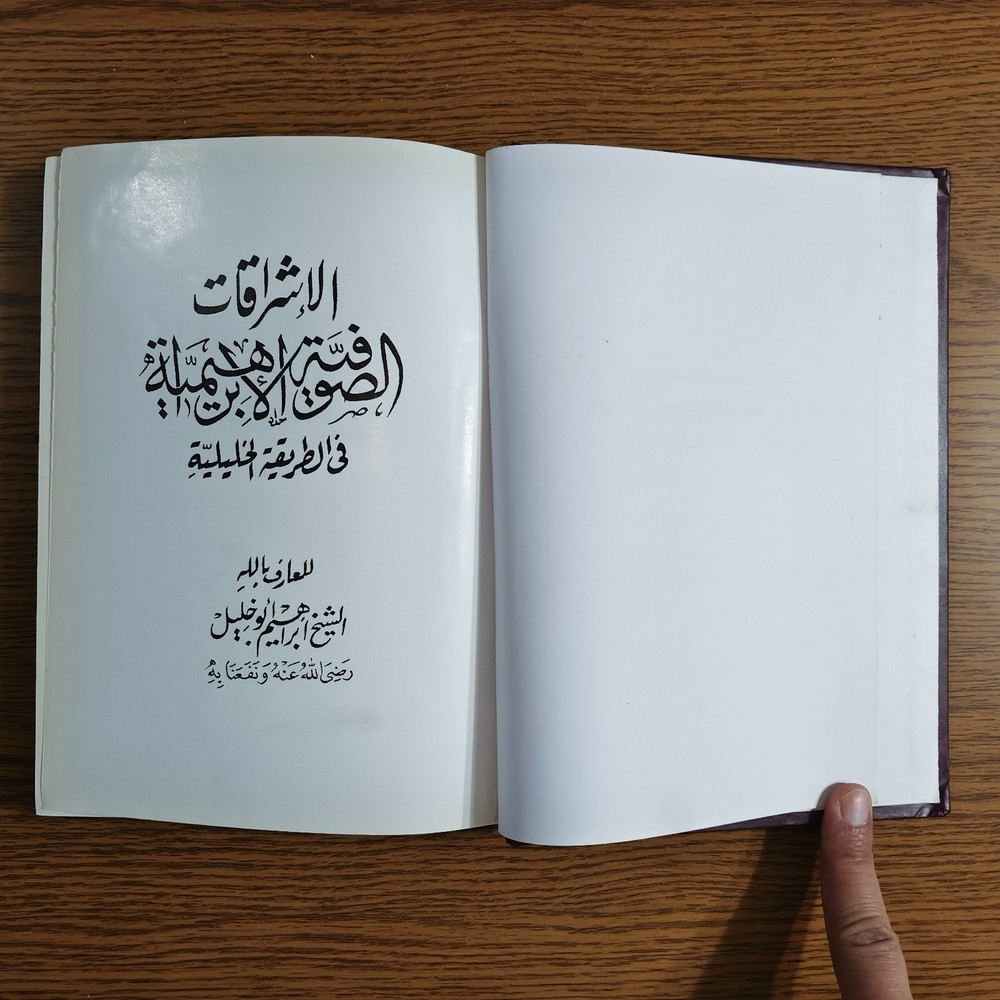 الإشراقات
الصوفيَّة الإبراهيميَّة
فى الطريقة الخليليَّة
للعارف بالله
الشيخ ابراهيم أبو خليل
رَضِىَ اللهُ عَنْهُ وَنَفَعَنَا بِهِ